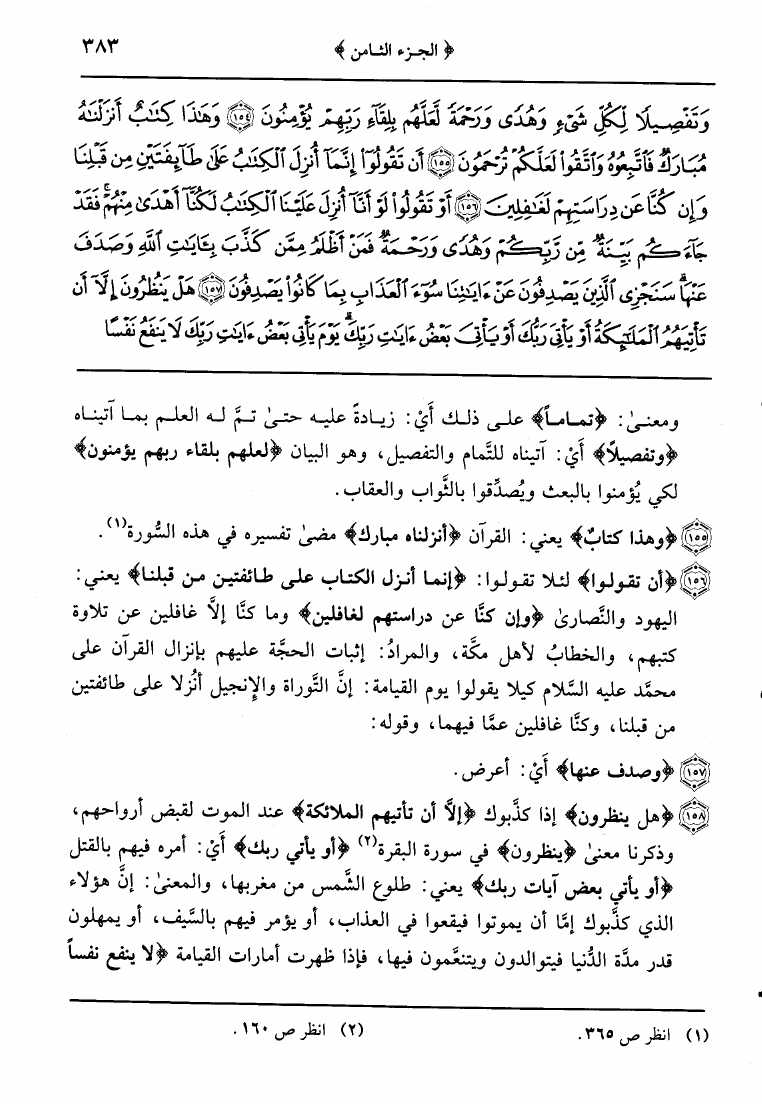 ﴿ الجزء الثامن ﴾ ٣٨٣
وَتَفْصِيلًا لِّكُلِّ شَىْءٍ وَهُدًى وَرَحْمَةً لَّعَلَّهُم بِلِقَآءِ رَبِّهِمْ يُؤْمِنُونَ ١٥٤ وَهَٰذَا كِتَٰبٌ أَنزَلْنَٰهُ
مُبَارَكٌ فَٱتَّبِعُوهُ وَٱتَّقُوا۟ لَعَلَّكُمْ تُرْحَمُونَ ١٥٥ أَن تَقُولُوٓا۟ إِنَّمَآ أُنزِلَ ٱلْكِتَٰبُ عَلَىٰ طَآئِفَتَيْنِ مِن قَبْلِنَا
وَإِن كُنَّا عَن دِرَاسَتِهِمْ لَغَٰفِلِينَ ١٥٦ أَوْ تَقُولُوا۟ لَوْ أَنَّآ أُنزِلَ عَلَيْنَا ٱلْكِتَٰبُ لَكُنَّآ أَهْدَىٰ مِنْهُمْ ۚ فَقَدْ
جَآءَكُم بَيِّنَةٌ مِّن رَّبِّكُمْ وَهُدًى وَرَحْمَةٌ ۚ فَمَنْ أَظْلَمُ مِمَّن كَذَّبَ بِـَٔايَٰتِ ٱللَّهِ وَصَدَفَ
عَنْهَا ۗ سَنَجْزِى ٱلَّذِينَ يَصْدِفُونَ عَنْ ءَايَٰتِنَا سُوٓءَ ٱلْعَذَابِ بِمَا كَانُوا۟ يَصْدِفُونَ ١٥٧ هَلْ يَنظُرُونَ إِلَّآ أَن
تَأْتِيَهُمُ ٱلْمَلَٰٓئِكَةُ أَوْ يَأْتِىَ رَبُّكَ أَوْ يَأْتِىَ بَعْضُ ءَايَٰتِ رَبِّكَ ۗ يَوْمَ يَأْتِى بَعْضُ ءَايَٰتِ رَبِّكَ لَا يَنفَعُ نَفْسًا
ومعنىٰ: ﴿تماماً﴾ على ذلك أَيْ: زيادةً عليه حتىٰ تمَّ له العلم بما آتيناه
﴿وتفصيلاً﴾ أَيْ: آتيناه للتَّمام والتفصيل، وهو البيان ﴿لعلهم بلقاء ربهم يؤمنون﴾
لكي يُؤمنوا بالبعث ويُصدِّقوا بالثَّواب والعقاب.
١٥٥ ﴿وهذا كتابٌ﴾ يعني: القرآن ﴿أنزلناه مبارك﴾ مضىٰ تفسيره في هذه السُّورة(١).
١٥٦ ﴿أن تقولوا﴾ لئلا تقولوا: ﴿إنما أنزل الكتاب على طائفتين من قبلنا﴾ يعني:
اليهود والنَّصارىٰ ﴿وإن كنَّا عن دراستهم لغافلين﴾ وما كنَّا إلَّا غافلين عن تلاوة
كتبهم، والخطابُ لأهل مكَّة، والمرادُ: إثبات الحجَّة عليهم بإنزال القرآن على
محمَّد عليه السَّلام كيلا يقولوا يوم القيامة: إنَّ التَّوراة والإِنجيل أُنزلا على طائفتين
من قبلنا، وكنَّا غافلين عمَّا فيهما، وقوله:
١٥٧ ﴿وصدف عنها﴾ أَيْ: أعرض.
١٥٨ ﴿هل ينظرون﴾ إذا كذَّبوك ﴿إلَّا أن تأتيهم الملائكة﴾ عند الموت لقبض أرواحهم،
وذكرنا معنىٰ ﴿ينظرون﴾ في سورة البقرة(٢) ﴿أو يأتي ربك﴾ أَيْ: أمره فيهم بالقتل
﴿أو يأتي بعض آيات ربك﴾ يعني: طلوع الشَّمس من مغربها، والمعنىٰ: إنَّ هؤلاء
الذي كذَّبوك إمَّا أن يموتوا فيقعوا في العذاب، أو يؤمر فيهم بالسَّيف، أو يمهلون
قدر مدَّة الدُّنيا فيتوالدون ويتنعَّمون فيها، فإذا ظهرت أمارات القيامة ﴿لا ينفع نفساً
(١) انظر ص ٣٦٥. (٢) انظر ص ١٦٠.